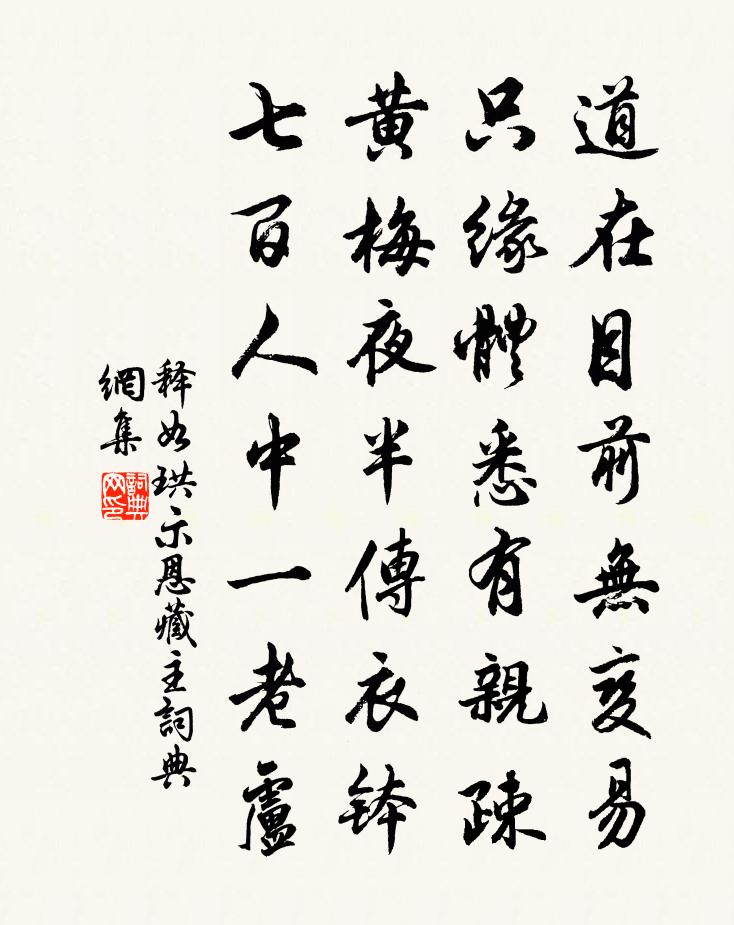 道在目前無变易
只緣體悉有親疎
黃梅夜半傳衣鉢
七百人中一老盧
释如珙示恩藏主詞典
網集
詞典
网印